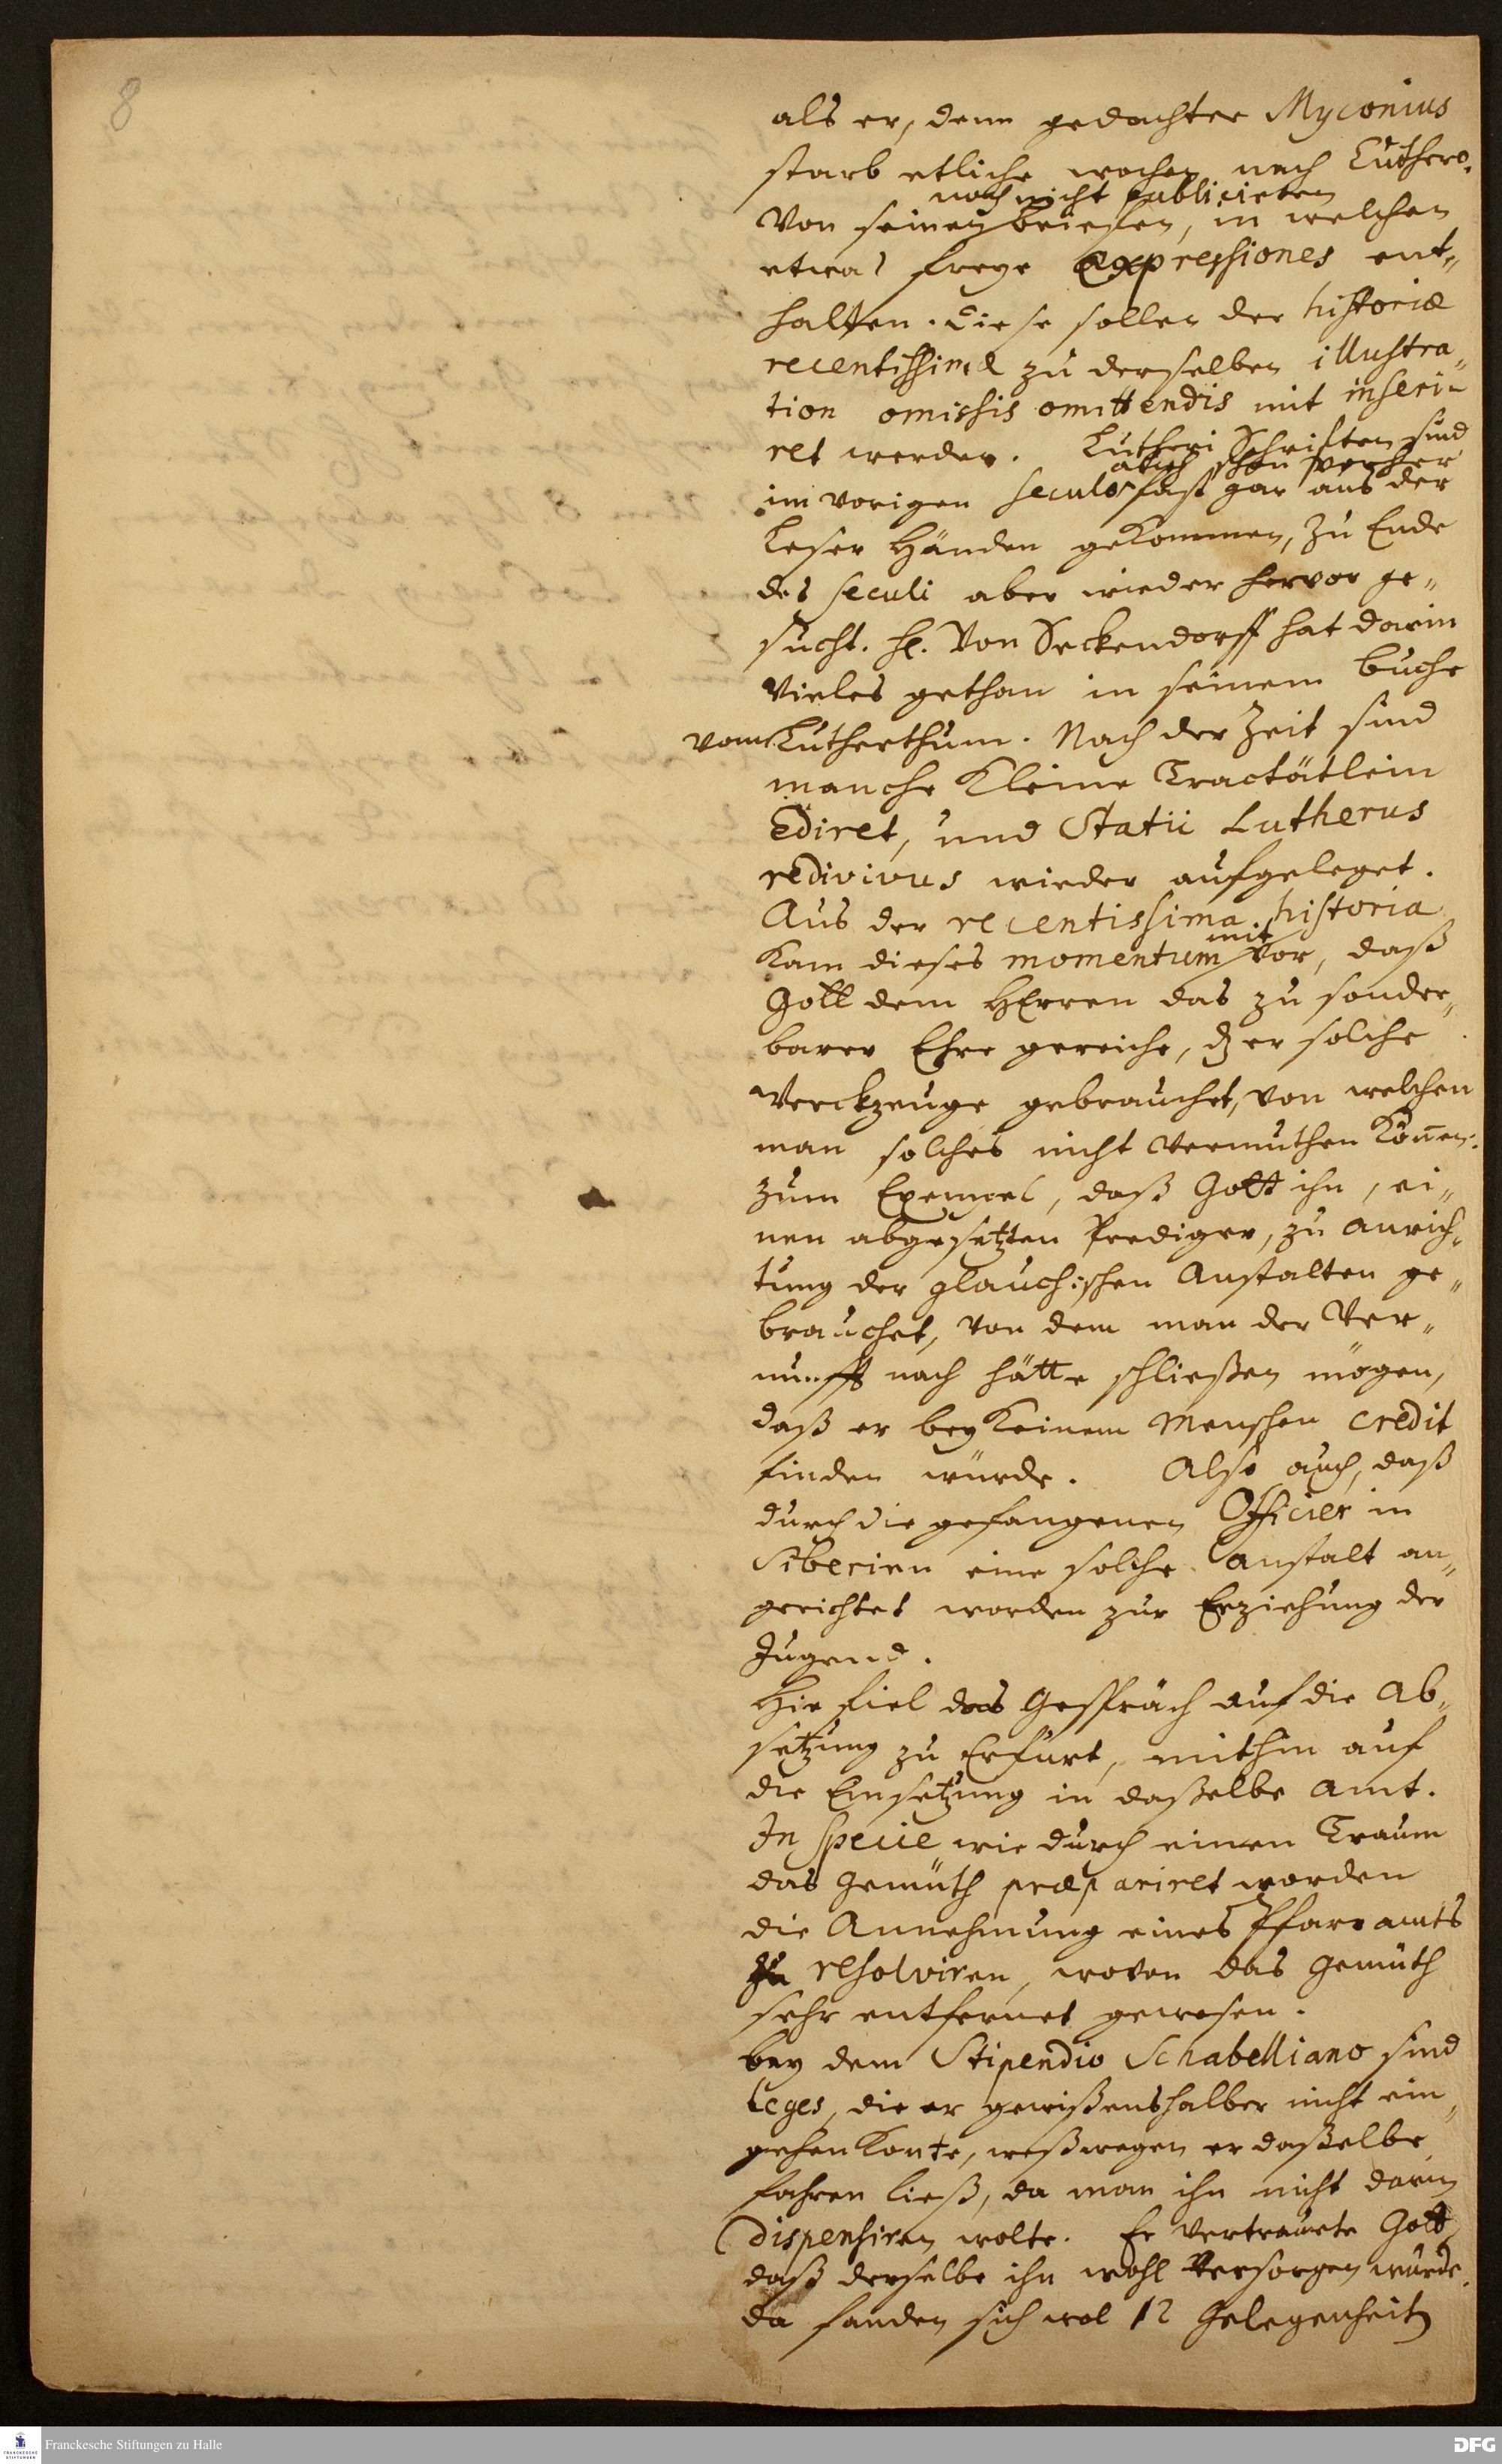 8
als er, denn gedachter Myconius
starb etliche wochen nach Luthero.
noch nicht publicirten
Von seinen briefen, in welchen
etwas freye expressiones ent„
halten. Diese sollen der historiæ
recentissimæ zu derselben illustra„
tion omissis omittendis mit inseri„
ret werden. Lutheri Schriften sind
auch schon vorher
im vorigen seculo fast gar aus der
Leser Händen gekommen, zu Ende
des seculi aber wieder hervor ge„
sucht. H. Von Seckendorff hat darin
Vieles gethan in seinem buche
vom Lutherthum. Nach der Zeit sind
manche kleine Tractätlein
Ediret, und Statii Lutherus
redivivus wieder aufgeleget.
Aus der recentissima historia
mit
kam dieses momentum vor, daß
Gott dem HErren das zu sonder„
barer Ehre gereiche, dz er solche
Werckzeuge gebrauchet, von welchen
man solches nicht vermuthen können.
zum Exempel, daß Gott ihn, ei„
nen abgesetzten Prediger, zu anrich„
tung der glauchischen Anstalten ge„
brauchet, von dem man der Ver„
nunfft nach hätte schließen mögen,
daß er bey keinem Menschen credit
finden würde. Also auch, daß
durch die gefangenen Officier in
Siberien eine solche Anstalt an„
gerichtet worden zur Erziehung der
Jugend.
Hie fiel das Gespräch auf die Ab„
setzung zu Erfurt, mithin auf
die Einsetzung in daßelbe Amt.
In specie wie durch einen Traum
das Gemüth præpariret worden
die Annehmung eines Pfarramts
zu resolviren, wovon das Gemüth
sehr entfernet gewesen.
bey dem Stipendio Schabelliano sind
leges, die er gewißenshalber nicht ein„
gehen konte, weßwegen er daßelbe
fahren ließ, da man ihn nicht darin
dispensiren wolte. Er vertrauete Gott
daß derselbe ihn wohl versorgen würde.
da fanden sich wol 12 Gelegenheit
Franckesche Stiftungen zu Halle
DFG